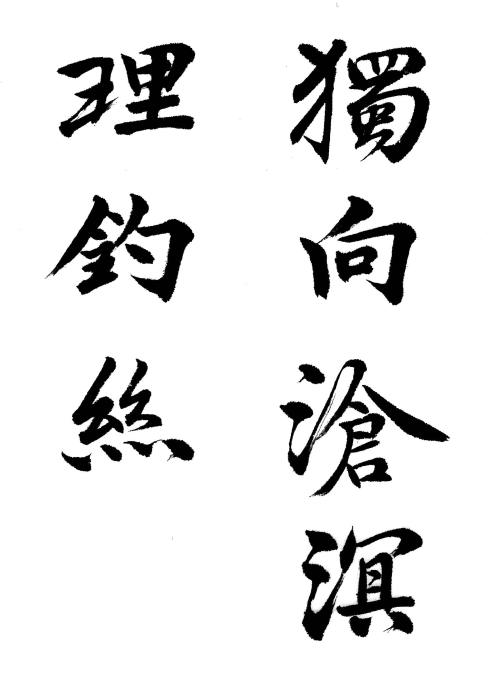 獨向滄溟
理釣絲